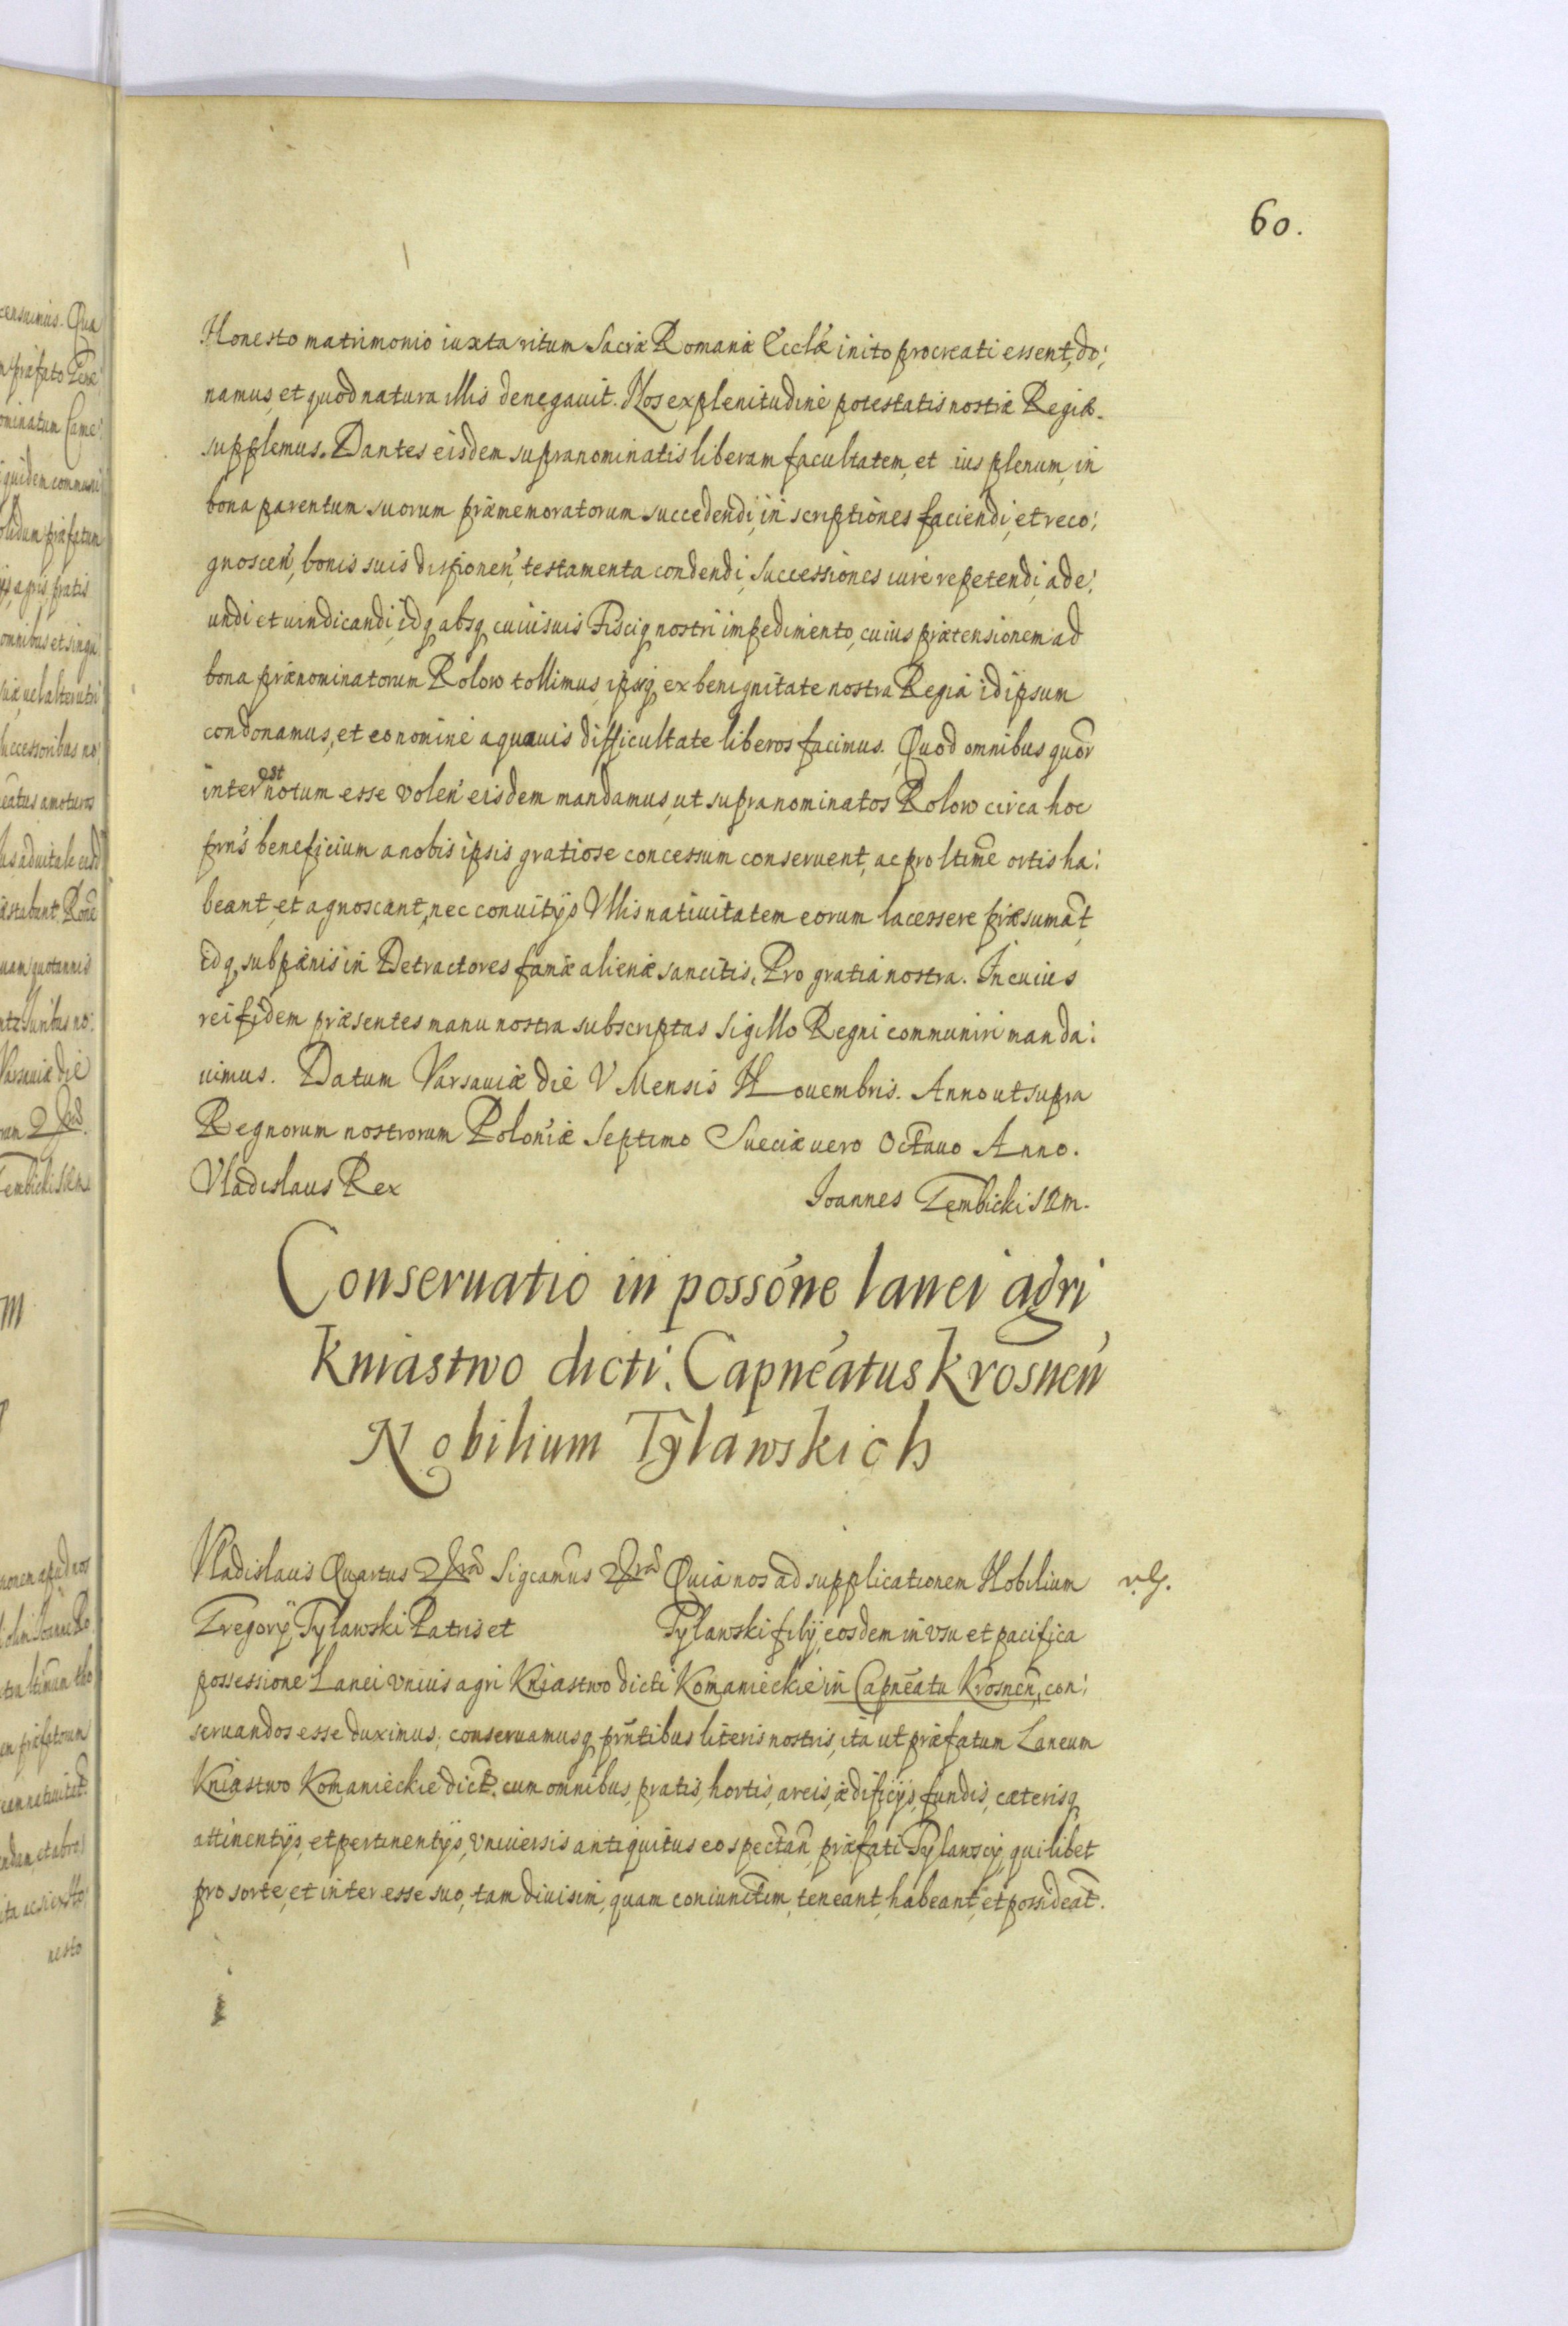 60.
Honesto matrimonio iuxta ritum Sacræ Romanæ Ecclæ inito procreati essent, do:
namus, et quod natura illis denegauit. Nos ex plenitudine potestatis nostræ Regiæ.
supplemus. Dantes eisdem supranominatis liberam facultatem, et ius plenum, in
bona parentum suorum præmemoratorum succedendi, inscriptiones faciendi, et reco:
gnoscen, bonis suis disponen, testamenta condendi, Successiones iure repetendi, ade:
undi et uindicandi, idq absq cuiusuis Fisciq nostri impedimento, cuius prætensionem ad
bona prænominatorum Rolow tollimus, ipsisq ex benignitate nostra Regia id ipsum
condonamus, et eo nomine a quauis difficultate liberos facimus. Quod omnibus quor
interest notum esse volen eisdem mandamus, ut supranominatos Rolow circa hoc
prns beneficium a nobis ipsis gratiose concessum conseruent, ac pro ltime ortis ha:
beant, et agnoscant, nec conuitijs Vllis natiuitatem eorum lacessere præsumāt,
idq, sub pænis in Detractores famæ alienæ sancitis, Pro gratia nostra. In cuius
rei fidem præsentes manu nostra subscriptas Sigillo Regni communiri manda:
uimus. Datum Varsauiæ die V Mensis Nouembris. Anno ut supra
Regnorum nostrorum Poloniæ Septimo Sueciæ uero Octauo Anno.
Vladislaus Rex Joannes Gembicki SRM.
Conseruatio in possone lanei agri
Kniastwo dicti. Capneatus Krosnen
Nobilium Tylawskich
Vladislaus Quartus Sigcamus Quia nos ad supplicationem Nobilium
Gregorij Tylawski Patris et Tylawski filij, eosdem in vsu et pacifica
possessione Lanei vnius agri Kniastwo dicti Komanieckie in Capneatu Krosnen, con:
seruandos esse duximus, conseruamusq prntibus literis nostris, ita ut præfatum Laneum
Kniastwo Komanieckie dict. cum omnibus, pratis, hortis, areis, ædificijs, fundis, cæterisq
attinentijs, et pertinentijs, vniuersis antiquitus eo spectan, præfati Tylawscy, quilibet
pro sorte, et interesse suo, tam diuisim, quam coniunctim, teneant, habeant, et possideāt.